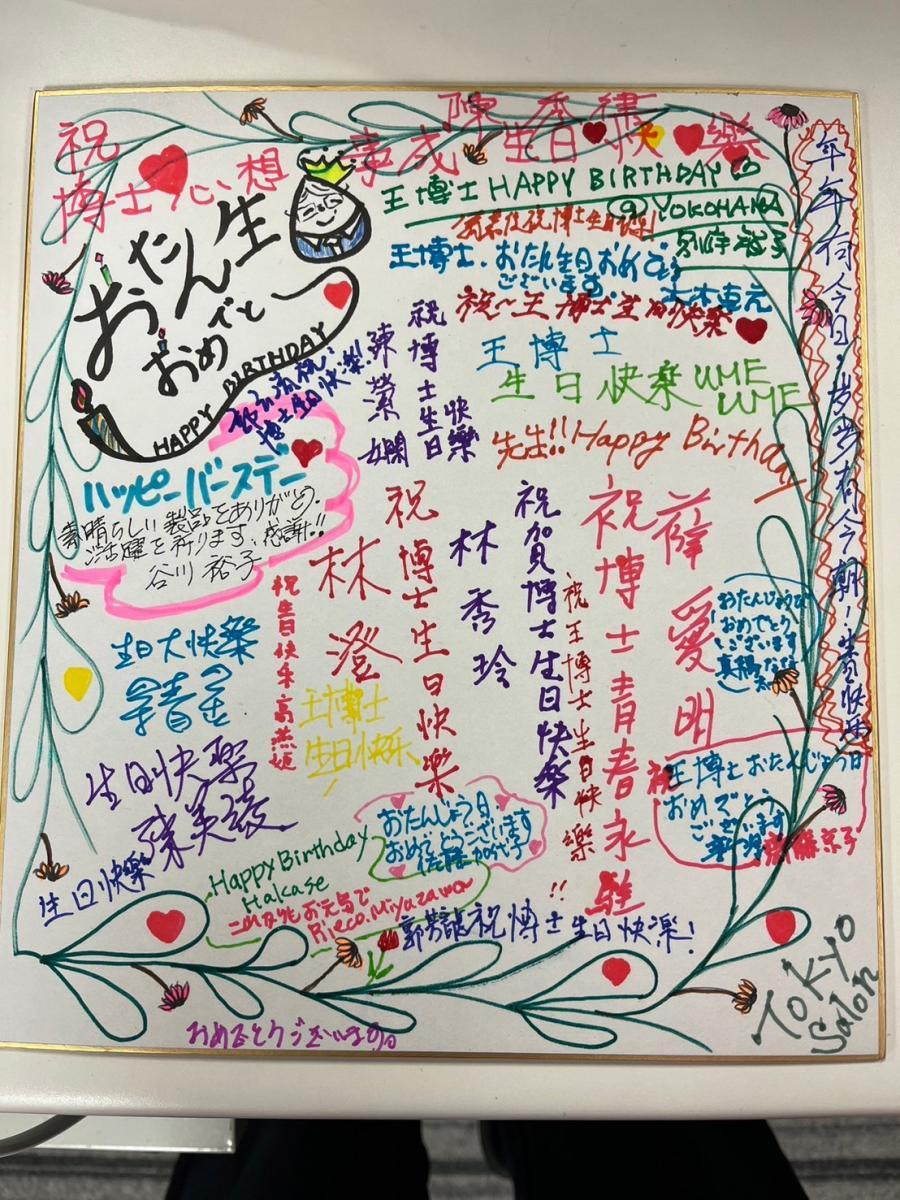 陳秀
祝 博士心想事成 生日快樂
おたん生
おめでと
HAPPY BIRTHDAY
王博士 HAPPY BIRTHDAY
@ YOKOHAMA
裕子
祝博士生日快樂!
王博士、おたん生日おめでとう
ございます
祝~王博士生日快樂
王博士
生日快樂 UME
UME
先生!! Happy Birthday
年年有今日,歲歲有今朝!生日快樂
祝博士生日快樂
陳
博士生日快樂!!
ハッピーバースデー
素晴らしい製品をありがとう。
ご活躍を祈ります、感謝!!
谷川 裕子
祝博士生日快樂
林澄
祝賀博士生日快樂
林秀玲
祝王博士生日快樂!!
祝博士青春永駐
薛愛明
おたんじょうび
おめでとう
ございます
王博士おたんじょう日
おめでとう
ございます
京子
生日大快樂
祝生日快乐 高燕姫
王博士
生日快乐
生日快樂
美
生日快樂
おたんじょう日
おめでとうございます
佐藤加代子
Happy Birthday
Hakase
これからもお元気で
Rieco.Miyazawa
郭芳龍祝博士生日快樂!
おめでとうございます
TOKYO
Salon